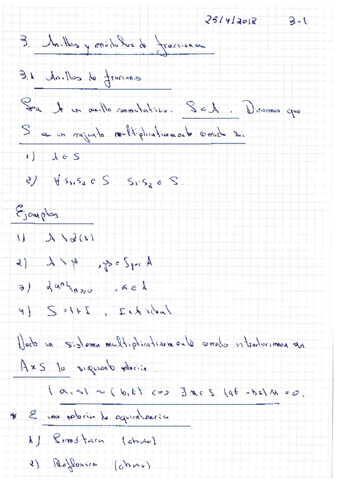 25/4/2018 3-1
3. Anillos y módulos de fracciones
3.1 Anillos de fracciones
Sea A un anillo conmutativo. S ⊂ A. Diremos que
S es un conjunto multiplicativamente cerrado si
1) 1 ∈ S
2) ∀ s₁, s₂ ∈ S s₁·s₂ ∈ S.
Ejemplos
1) A \ Z(A)
2) A \ p, p ∈ Spec A
3) {aⁿ}ₙ≥₀, a ∈ A
4) S = 1+I, I ⊂ A ideal
Dado un sistema multiplicativamente cerrado introducimos en
A×S la siguiente relación
(a,s) ~ (b,t) <=> ∃ u ∈ S (at - bs)u = 0.
* Es una relación de equivalencia
1) Simétrica (obvio)
2) Reflexiva (obvio)